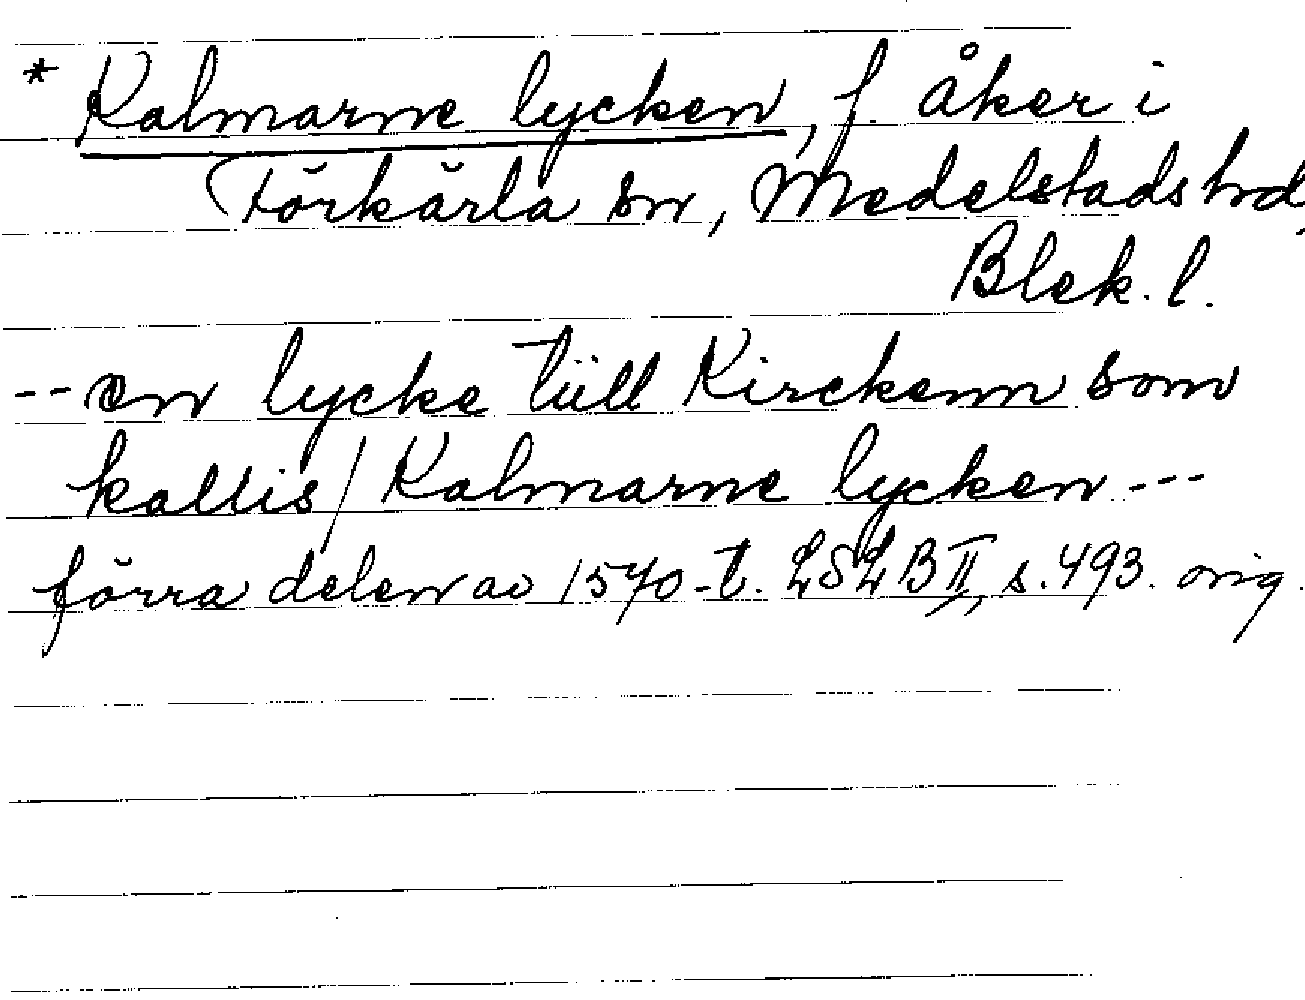 * Kalmarne lycken, f. åker i
Förkärla sn, Medelstads hd,
Blek. l.
-- en lycke tiill Kirckenn som
kallis / Kalmarne lycken ---
förra delen av 1570-t. LSLB II, s. 493. orig.